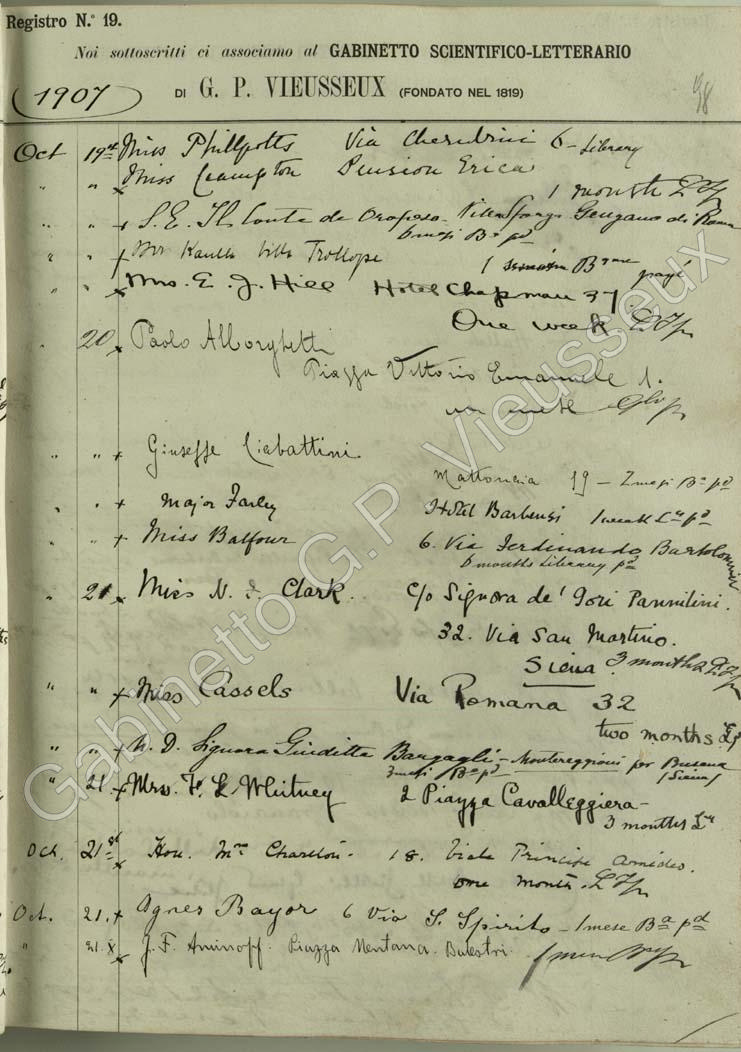 Registro N.° 19.
Noi sottoscritti ci associamo al GABINETTO SCIENTIFICO-LETTERARIO
1907 DI G. P. VIEUSSEUX (FONDATO NEL 1819)
98
Oct 19 Miss Phillpotts Via Cherubini 6 - Library
" " Miss Crampton Pension Erica
1 month
" " S. E. Il Conte de Oropesa - Villa Sforza Genzano di Roma
6 mesi Ba pd
" " Villa Trollope 1 payé
" " Mrs. E. J. Hill Hotel Chapman 37.
One week
" 20 Paolo Alborghetti
Piazza Vittorio Emanuele 1.
un mese
" " Giuseppe Ciabattini
Mattonaia 19 - 2 mesi Ba pd
" " Major Farley Hotel Barbensi 1 week pd
" " Miss Balfour 6. Via Ferdinando Bartolommei
6 months Library pd
" 21 Miss N. Clark. c/o Signora de' Gori Pannilini.
32. Via San Martino.
Siena 3 months
" " Miss Cassels Via Romana 32
two months
" " N. D. Signora Giuditta Bargagli - Montereggioni per
3 mesi Ba pd (Siena)
" 21. Mrs. F. L. Whitney 2 Piazza Cavalleggiera -
3 months
Oct. 21st Hon. Mrs Charlton - 18. Viale Principe Amedeo.
one month.
Oct. 21. Agnes Bayor 6 Via S. Spirito - 1 mese Ba pd
" 21. J. F. Aminoff. Piazza Mentana. Balestri.
Gabinetto G.P. Vieusseux